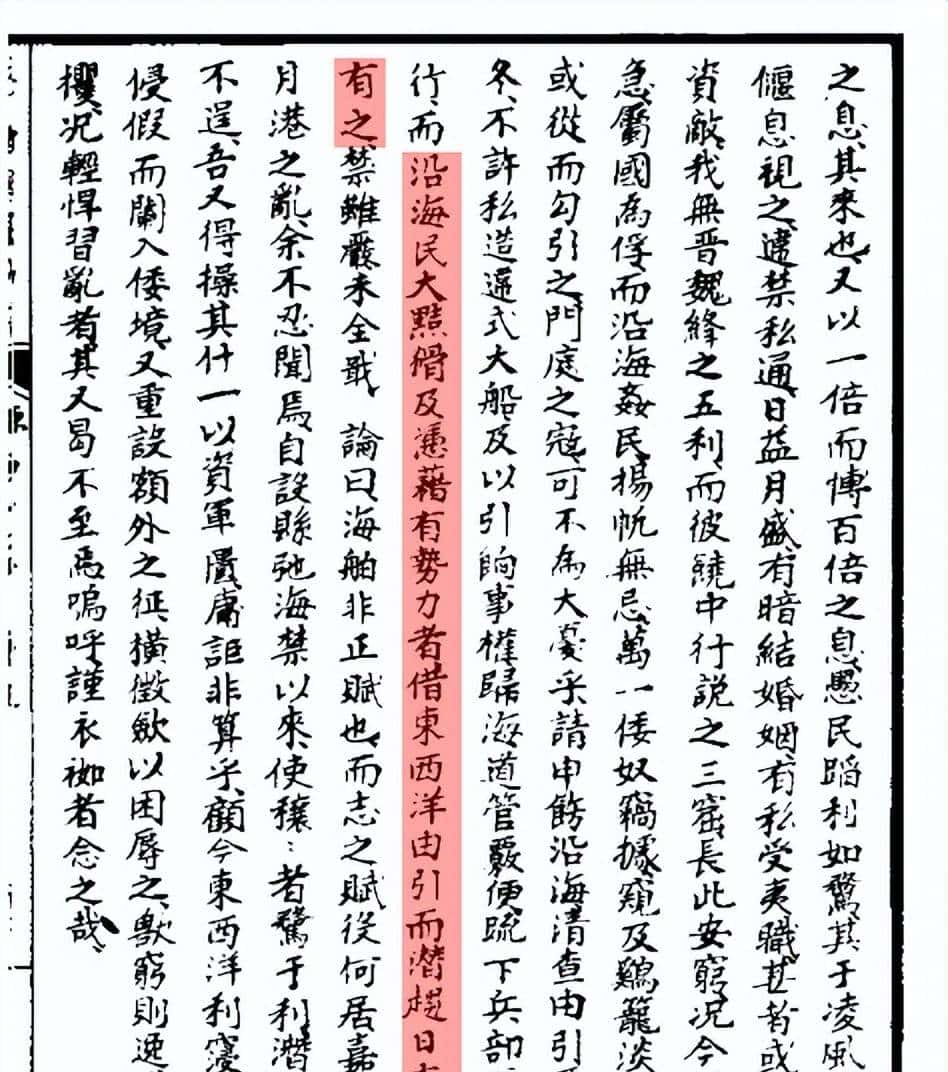 之息其來也又以一倍而慱百倍之息愚民蹈利如騖其于凌風
偃息視之違禁私通日益月盛有暗結婚姻有私受夷職甚者或
資敵我無晉魏絳之五利而彼繞中行説之三窟長此安窮况今
急屬國為俘而沿海姦民揚帆無忌萬一倭奴竊據窺及鷄籠淡
或從而勾引之門庭之寇可不為大憂乎請申飭沿海清查由引
冬不許私造違式大船及以引餉事權歸海道管覈便䟽下兵部
行而沿海民大黠猾及憑藉有勢力者借東西洋由引而潜趍日
有之禁雖嚴未全戢 論曰海舶非正賦也而志之賦役何居嘉
月港之亂余不忍聞焉自設縣弛海禁以來使穰〻者騖于利潜
不逞吾又得操其什一以資軍匱庸詎非算乎顧今東西洋利寖
侵假而闌入倭境又重設額外之征橫徵歛以困辱之獸窮則逸
攖况輕悍習亂者其又曷不至焉嗚呼謹衣袽者念之哉